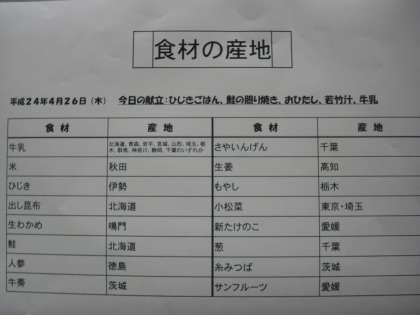 食材の産地
平成24年4月26日（木） 今日の献立：ひじきごはん、鮭の照り焼き、おひたし、若竹汁、牛乳
食材 産地 食材 産地
牛乳 北海道、青森、岩手、宮城、山形、埼玉、栃木、群馬、神奈川、静岡、千葉のいずれか さやいんげん 千葉
米 秋田 生姜 高知
ひじき 伊勢 もやし 栃木
出し昆布 北海道 小松菜 東京・埼玉
生わかめ 鳴門 新たけのこ 愛媛
鮭 北海道 葱 千葉
人参 徳島 糸みつば 茨城
牛蒡 茨城 サンフルーツ 愛媛